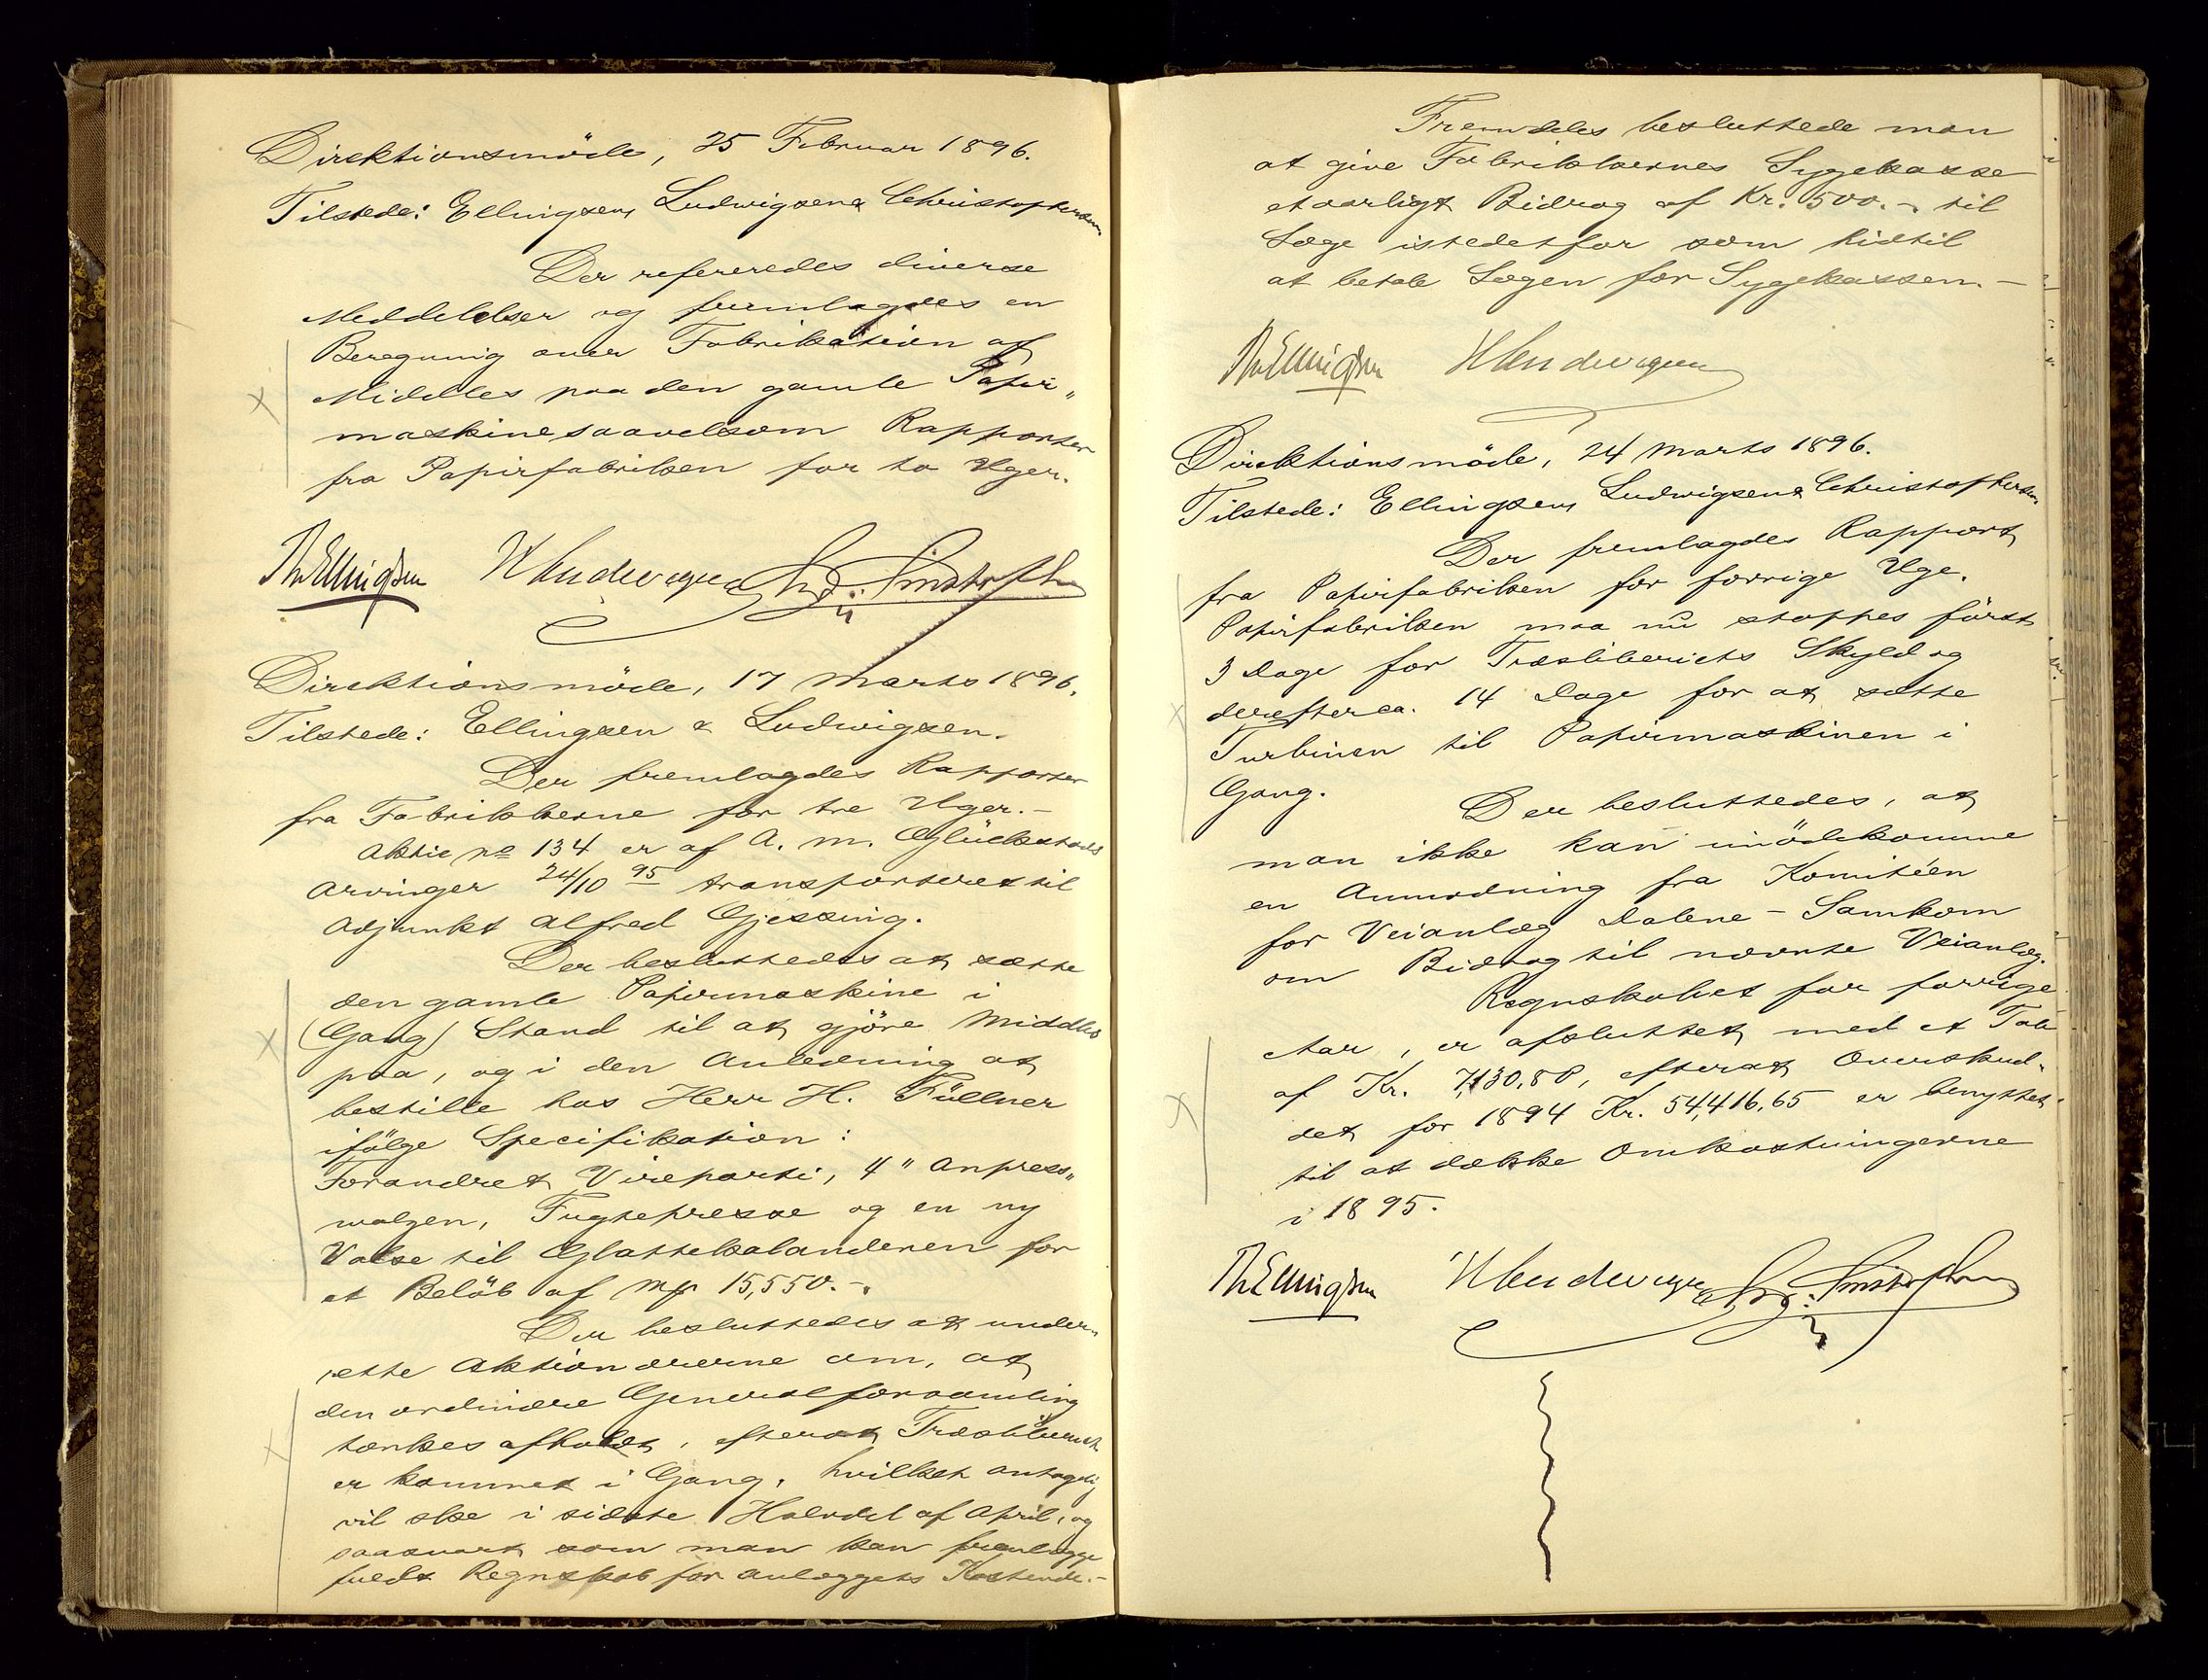 Direktionsmöde, 25 Februar 1896.
Tilstede: Ellingsen, Ludwigsen & Christophersen
Der refereredes diverse
Meddelelser og fremlagdes en
Beregning over Fabrikation af
Middles paa den gamle Papir„
maskine saavelsom Rapporter
fra Papirfabriken for to Uger.
Th Ellingsen W Ludwigsen Chr. Christophersen
Direktionsmöde, 17 Marts 1896.
Tilstede: Ellingsen & Ludwigsen.
Der fremlagdes Rapporter
fra Fabrikkerne for tre Uger.-
Aktie no 134 er af A. M. Glückstads
Arvinger 24/10 95 transporteret til
Adjunkt Alfred Gjessing.
Der besluttedes at sætte
den gamle Papirmaskine i
(Gang) Stand til at gjöre Middles
paa, og i den Anledning at
bestille hos Herr H. Füllner
ifölge Specifikation:
Forandret Vireparti, 4" Anpress„
walzen, Fugtepresse og en ny
Valse til Glattekalanderen for
et Belöb af Mk 15,550.-.
Der besluttedes at under„
rette Aktionærerne om, at
den ordinære Generalforsamling
tænkes afholdt, efterat Træsliberiet
er kommet i Gang, hvilket antagelig
vil ske i sidste Halvdel af April, og
saasnart som man kan fremlægge
fuldt Regnskab for Anlæggets Kostende.-
Fremdeles besluttede man
at give Fabrikkernes Sygekasse
et aarligt Bidrag af Kr. 500.- til
Læge istedetfor som hidtil
at betale Lægen for Sygekassen.-
Th Ellingsen W Ludwigsen
Direktionsmöde, 24 Marts 1896.
Tilstede: Ellingsen, Ludwigsen & Christophersen.
Der fremlagdes Rapport
fra Papirfabriken for forrige Uge.
Papirfabriken maa nu stoppes först
3 Dage for Træsliberiets Skyld og
derefter ca. 14 Dage for at sætte
Turbinen til Papirmaskinen i
Gang.
Der besluttedes, at
man ikke kan imödekomme
en Anmodning fra Komitéen
for Veianlæg Dalene - Samkom
om Bidrag til nævnte Veianlæg.
Regnskabet for forrige
Aar, er afsluttet med et Tab
af Kr. 7,130.80, efterat Overskud„
det for 1894 Kr. 54,416,65 er benyttet
til at dække Omkostningerne
i 1895.
Th Ellingsen W Ludwigsen Chr. Christophersen